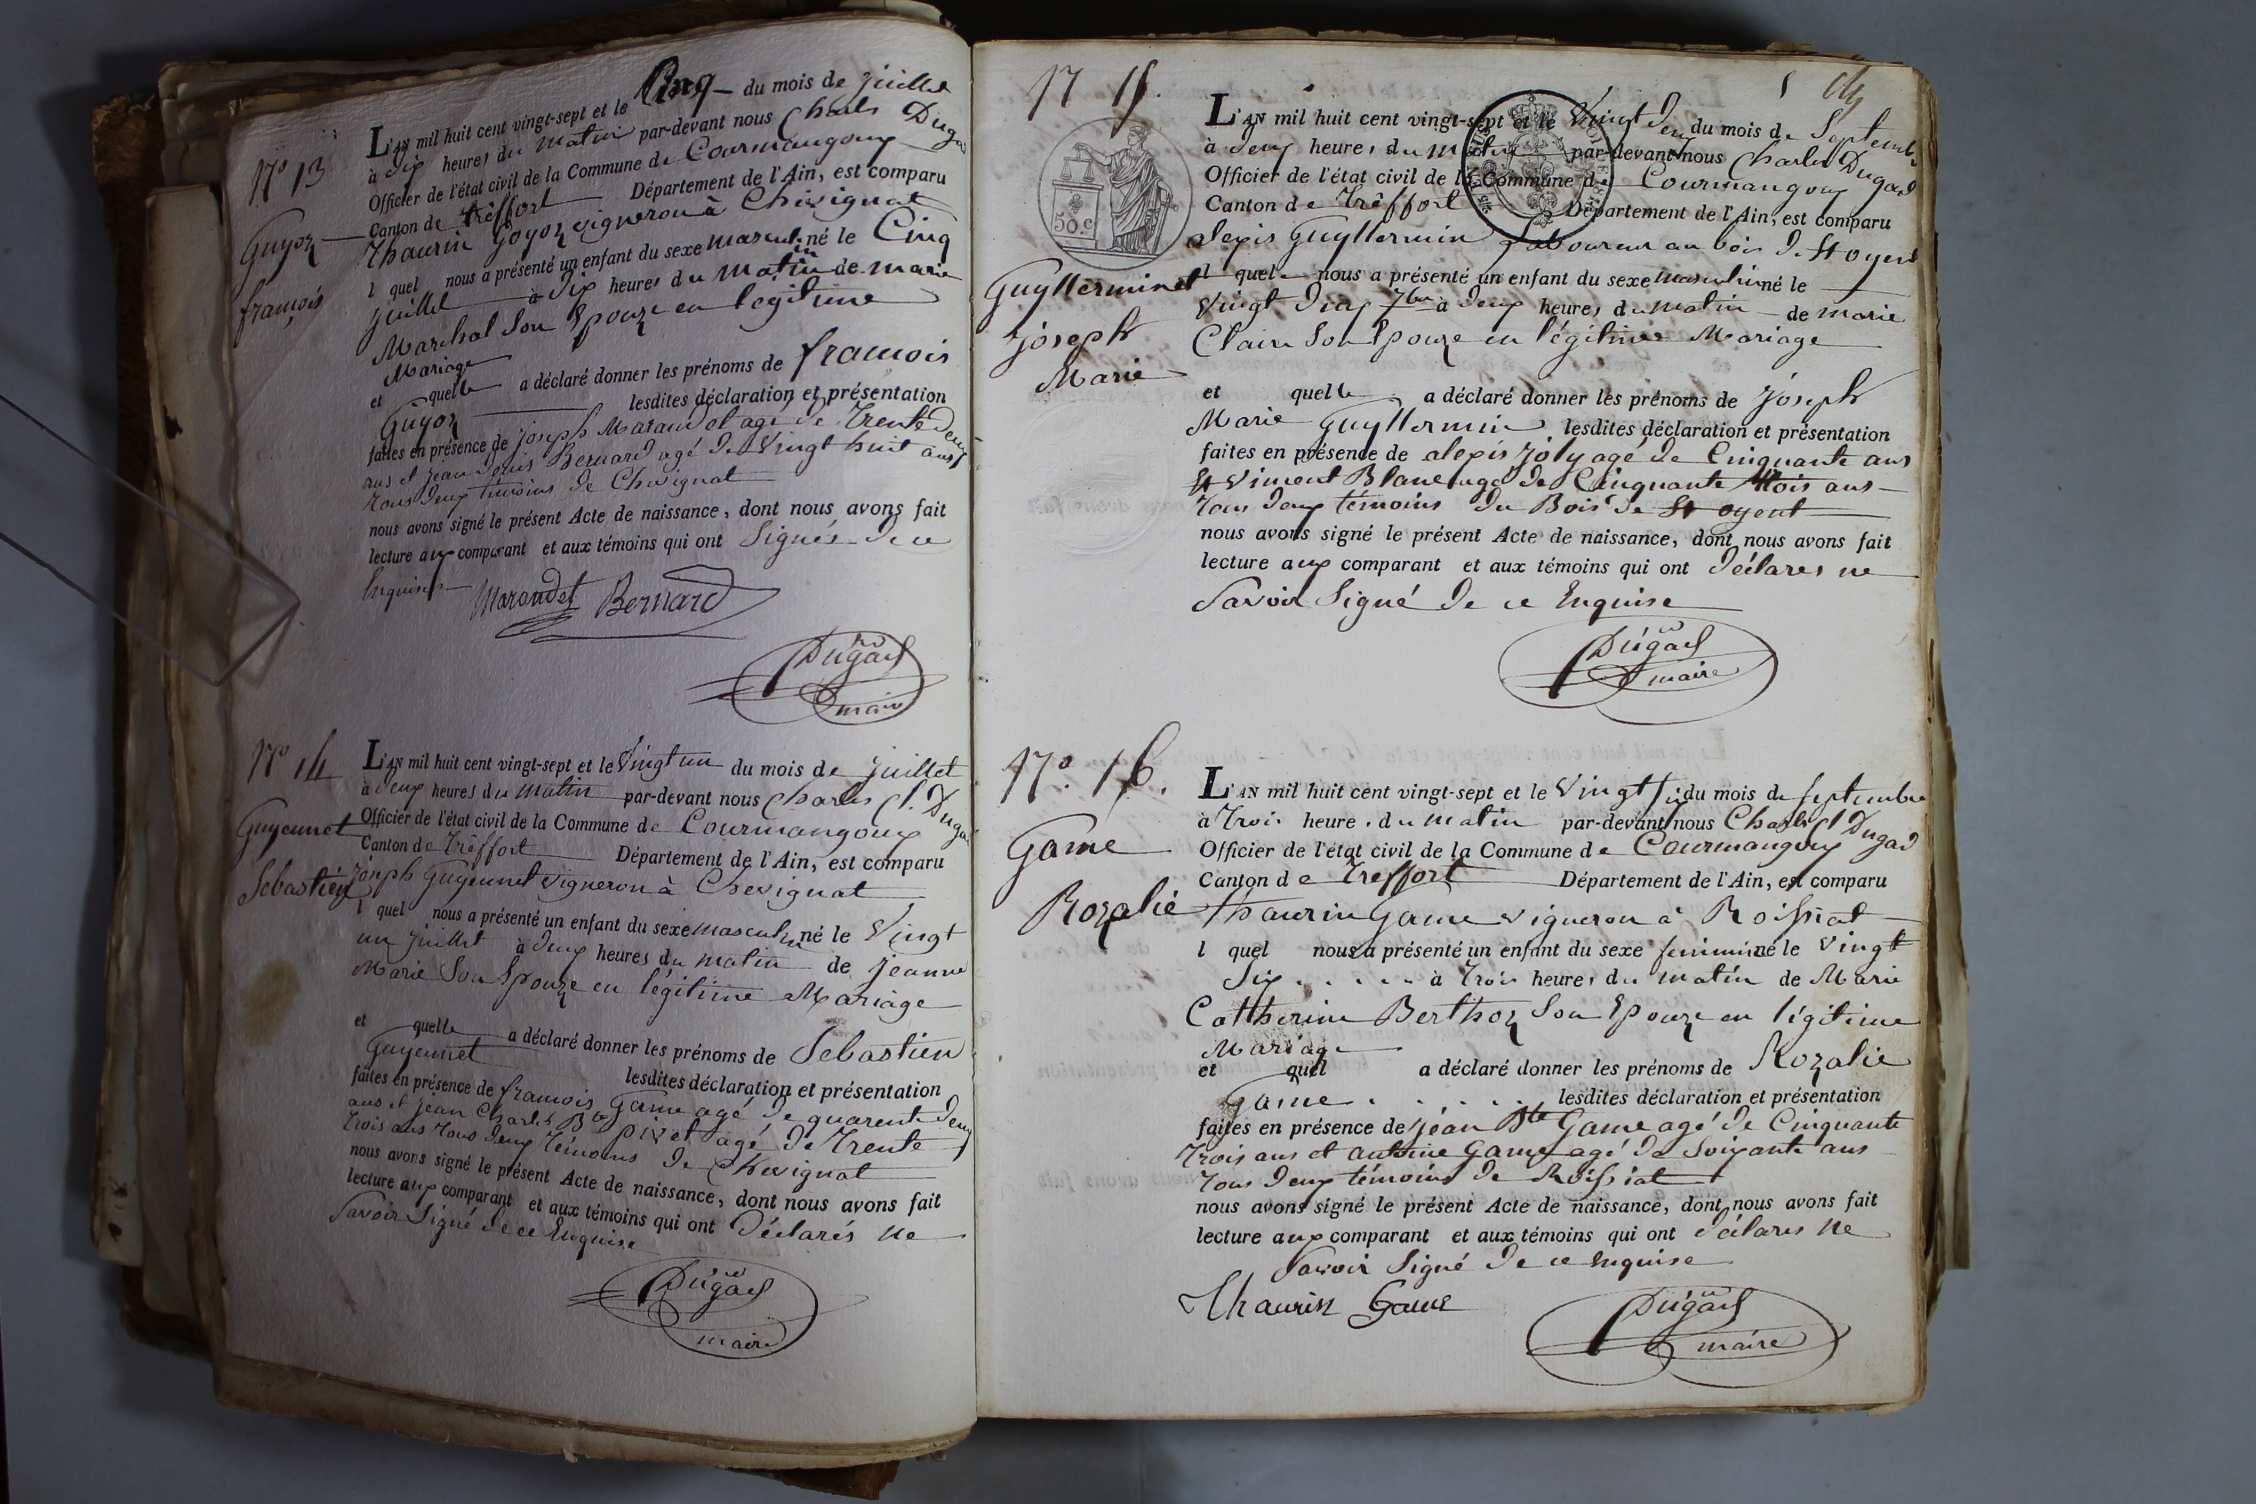 N° 13
Guyoz
françois
L'AN mil huit cent vingt-sept et le Cinq du mois de juillet
à dix heures du matin par-devant nous Charles Dugad
Officier de l'état civil de la Commune de Courmangoux
Canton de Trêffort Département de l'Ain, est comparu
Thaurin Goyoz vigneron à Chevignat
l quel nous a présenté un enfant du sexe masculin né le Cinq
juillet à dix heures du matin de marie
Marchal Son Epouze en legitime
Mariage
et quelle a déclaré donner les prénoms de françois
Guyoz lesdites déclaration et présentation
faites en présence de joseph Marandet agé de Trente deux
ans et jean Bernard agé de Vingt huit ans
Tous deux témoins de Chevignat
nous avons signé le présent Acte de naissance, dont nous avons fait
lecture aux comparant et aux témoins qui ont Signés de ce
Enquises
Marandet Bernard
Dugad
maire
N° 14
Guyennet
Sebastien
L'AN mil huit cent vingt-sept et le Vingt un du mois de juillet
à deux heures du matin par-devant nous Charles Cl. Dugad
Officier de l'état civil de la Commune de Courmangoux
Canton de Trêffort Département de l'Ain, est comparu
joseph Guyennet vigneron à Chevignat
l quel nous a présenté un enfant du sexe masculin né le Vingt
un juillet à deux heures du matin de jeanne
Marie Son Epouze en légitime Mariage
et quelle a déclaré donner les prénoms de Sebastien
Guyennet lesdites déclaration et présentation
faites en présence de françois Game agé de quarente deux
ans et jean Charles pivet agé de Trente
trois ans Tous deux Témoins de Chevignat
nous avons signé le présent Acte de naissance, dont nous avons fait
lecture aux comparant et aux témoins qui ont Déclarés ne
Savoir Signé de ce Enquise
Dugad
maire
N 15.
5
50.c
Guyllerminet
joseph
Marie
L'AN mil huit cent vingt-sept et le Vingt deux du mois de Septembre
à deux heures du matin par-devant nous Charles Dugad
Officier de l'état civil de la Commune de Courmangoux
Canton de Trêffort Département de l'Ain, est comparu
alexis Guyllermin Laboureur au bois de St oyent
l quel nous a présenté un enfant du sexe masculin né le
Vingt deux 7bre à deux heures du matin de marie
Claire Son Epouze en légitime Mariage
et quelle a déclaré donner les prénoms de joseph
Marie Guyllermin lesdites déclaration et présentation
faites en présence de alexis joly agé de Cinquante ans
et Vincent Blanc agé de Cinquante trois ans
Tous deux témoins du Bois de St oyent
nous avons signé le présent Acte de naissance, dont nous avons fait
lecture aux comparant et aux témoins qui ont déclares ne
Savoir Signé de ce Enquise
Dugad
maire
N°. 16.
Game
Rozalie
L'AN mil huit cent vingt-sept et le Vingt Six du mois de Septembre
à Trois heures du matin par-devant nous Charles Cl Dugad
Officier de l'état civil de la Commune de Courmangoux
Canton de Treffort Département de l'Ain, est comparu
thaurin Game vigneron à Roissiat
l quel nous a présenté un enfant du sexe feminin né le Vingt
Six . . . . . à Trois heures du matin de Marie
Catherine Berthoz Son Epouze en légitime
Mariage
et quel a déclaré donner les prénoms de Rozalie
Game . . . . . lesdites déclaration et présentation
faites en présence de jean Bte Game agé de Cinquante
Trois ans et antoine Game agé de Soixante ans
Tous deux témoins de Roissiat
nous avons signé le présent Acte de naissance, dont nous avons fait
lecture aux comparant et aux témoins qui ont déclares ne
Savoir Signé de ce enquise
Thaurin Game
Dugad
maire